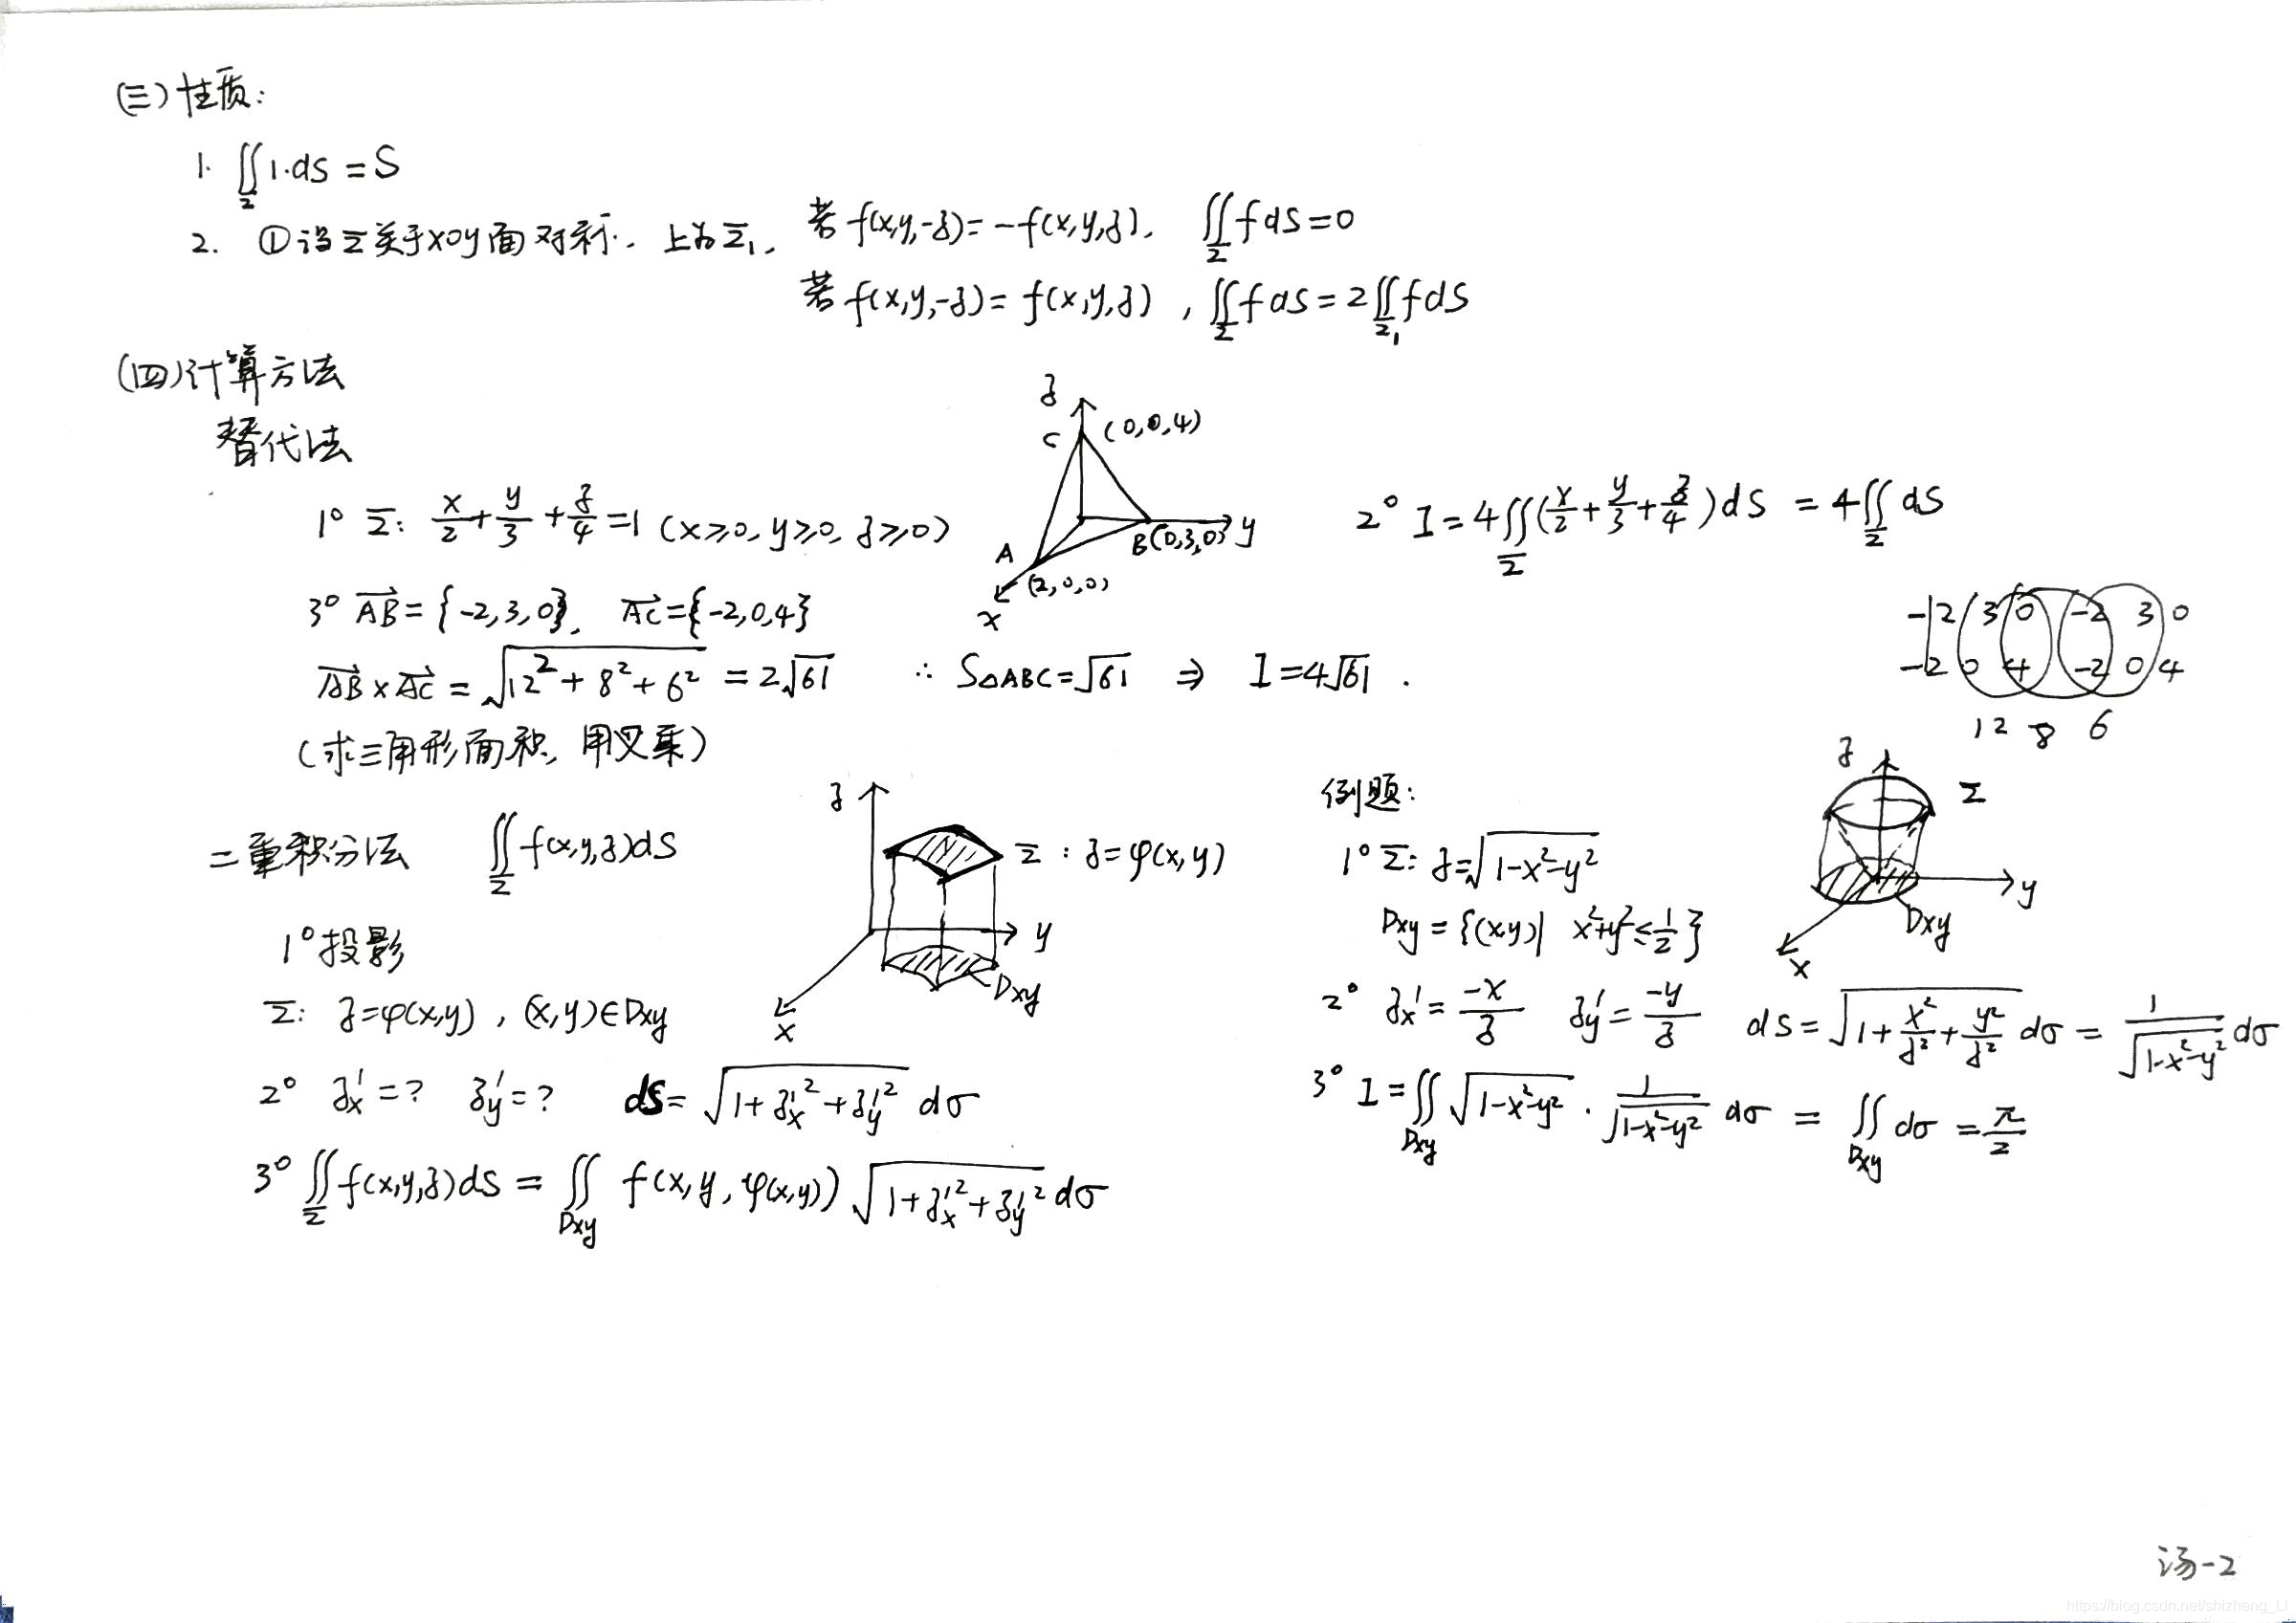 (三)性质:
1. ∬_Σ 1·dS = S
2. ①设Σ关于xoy面对称. 上为Σ₁, 若 f(x,y,-z) = -f(x,y,z), ∬_Σ f dS = 0
若 f(x,y,-z) = f(x,y,z), ∬_Σ f dS = 2∬_Σ₁ f dS
(四)计算方法
替代法
1° Σ: x/2 + y/3 + z/4 = 1 (x≥0, y≥0, z≥0)
z
C (0,0,4)
A (2,0,0)
B(0,3,0) y
x
2° I = 4∬_Σ (x/2 + y/3 + z/4) dS = 4∬_Σ dS
3° AB→ = {-2,3,0}, AC→ = {-2,0,4}
-2 3 0 -2 3 0
-2 0 4 -2 0 4
12 8 6
AB→ × AC→ = √(12² + 8² + 6²) = 2√61 ∴ S△ABC = √61 ⇒ I = 4√61.
(求三角形面积, 用叉乘)
二重积分法 ∬_Σ f(x,y,z)dS
z
Σ : z = φ(x,y)
y
Dxy
x
1° 投影
Σ: z = φ(x,y), (x,y)∈Dxy
2° z'x = ? z'y = ? dS = √(1 + z'x² + z'y²) dσ
3° ∬_Σ f(x,y,z)dS = ∬_Dxy f(x,y,φ(x,y)) √(1 + z'x² + z'y²) dσ
例题:
z
Σ
y
Dxy
x
1° Σ: z = √(1-x²-y²)
Dxy = {(x,y)| x²+y² ≤ 1/2}
2° z'x = -x/z z'y = -y/z dS = √(1 + x²/z² + y²/z²) dσ = 1/√(1-x²-y²) dσ
3° I = ∬_Dxy √(1-x²-y²) · 1/√(1-x²-y²) dσ = ∬_Dxy dσ = π/2
汤-2
https://blog.csdn.net/shizheng_Li